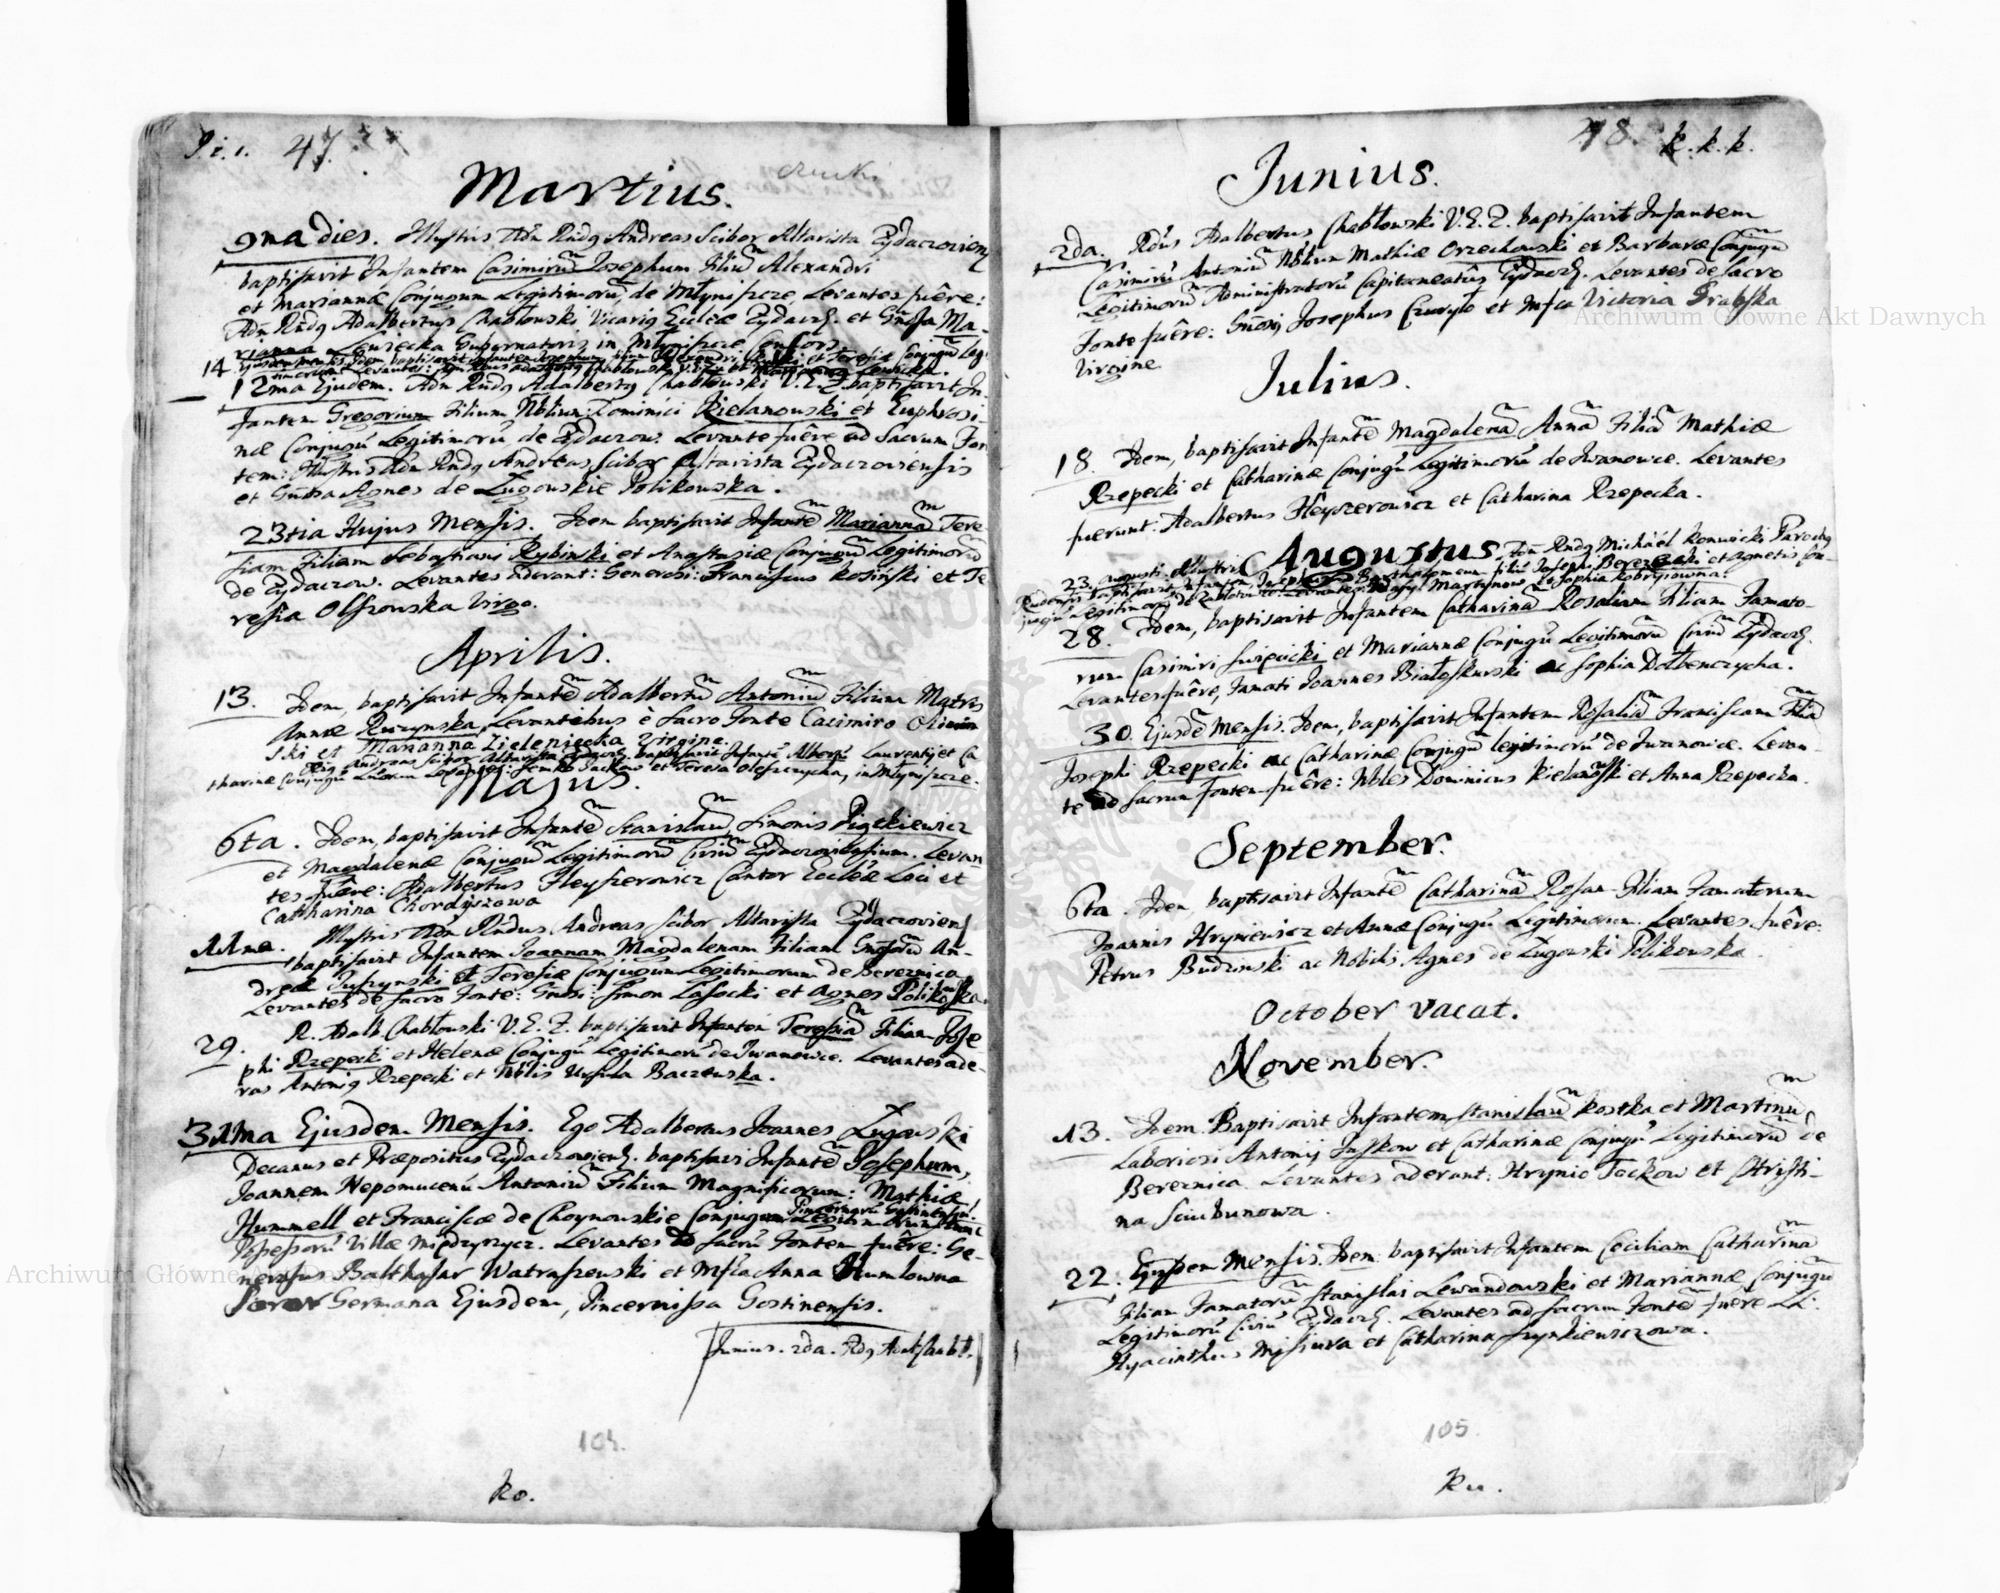 47.
Martius.
9na dies. Illustris Adm Rndg Andreas Scibor Altarista Zydaczovien
baptisavit Infantem Casimirum Josephum Filium Alexandri
et Mariannæ Conjugum Legitimorũ, de Młyniszcze, Levantes fuêre:
Adm Rndg Adalbertus Chabłowski Vicarig Eccleæ Zydacz. et Gnosa Ma-
rianna Gubernatoris in Młyniszcze Consors.
14
12ma Ejusdem. Adm Rndg Adalbertg Chabłowski V.E.Z. baptisavit In-
fantem Gregorium Filium Nbtium: Dominici Kielanowski et Euphrosi-
næ Conjugũ Legitimorũ de Zydaczow. Levante fuêre ad Sacrum Fon
tem: Illustris Adm Rndg Andreas Scibor Altarista Zydaczoviensis
et Gnosa Agnes de Ługowskie Polikowska.
23tia Hujus Mensis. Idem baptisavit Infantẽ Mariannã Tere
siam Filiam Sebastiani Rybinski et Anastasiæ Conjugũ Legitimorũ
de Zydaczow. Levantes aderant: Generosi: Franciscus Kosiński et Te
resia Olszowska Virgo.
Aprilis.
13. Idem, baptisavit Infantẽ Adalbertũ Antoniũ Filium Matris
Annæ Ruczynska, Levantibus è Sacro Fonte Casimiro
ski et Marianna Zieleniecka Virgine.
Rdg Andreas Scibor Altarista Zydacz. baptisavit Infantẽ Albertũ Laurentij et Ca
tharinæ Conjugũ Levantes: Semko Jackow et Teresa Oleszczycha, in Młyniszcze.
Majus.
6ta. Idem, baptisavit Infantẽ Stanislaũ, Simonis Piątkiewicz
et Magdalenæ Conjugũ Legitimorũ Civiũ Zydaczoviensium. Levan
tes fuêre: Adalbertus Heyszerowicz Cantor Eccleæ Loci et
Catharina Chordyszowa
11ma. Illustris Adm Rndus Andreas Scibor Altarista Zydaczovien
baptisavit Infantem Joannam, Magdalenam Filiam Gnosorũ An-
dreæ Juszynski et Teresiæ Conjugum Legitimorum de Bereznica
Levantes de Sacro Fonte: Gnosi: Simon Lasocki et Agnes Polikowska.
29. R. Adalb Chabłowski V.E.Z. baptisavit Infantem Teresiã Filiam Jose
phi Rzepecki et Helenæ Conjugũ Legitimorũ de Iwanowce. Levantes ade-
rant Antonig Rzepecki et Nblis Ursula Baczewska.
31ma Ejusdem Mensis. Ego Adalbertus Joannes Ługowski
Decanus et Præpositus Zydaczoviens. baptisavi Infantẽ Josephum,
Joannem Nepomucenũ Antoniũ Filium Magnificorum: Mathiæ
Hummell et Franciscæ de Choynowskie Conjugum Legitimorum
Pincernorũ Gostinensiũ
Possessorũ Villæ Międzyrzycz. Levantes ad Sacrũ Fontem fuêre: Ge-
nerosus Balthasar Watraszewski et Mfca Anna Humlowna
Soror Germana Ejusdem, Pincernissa Gostinensis.
Junius. 2da. Rdg Adalb Chabł.
104.
Ko.
48. k.k.k.
Junius.
2da. Rdus Adalbertus Chabłowski V.E.Z. baptisavit Infantem
Casimirũ Antoniũ Nbtium Mathiæ Orzechowski et Barbaræ Conjugũ
Legitimorũ Administratorũ Capitaneatûs Zydacz. Levantes de Sacro
Fonte fuêre: Gnosg Josephus Czuryło et Mfca Victoria Grabska
Virgine
Julius.
18. Idem, baptisavit Infantẽ Magdalenã Annã Filiã Mathiæ
Rzepecki et Catharinæ Conjugũ Legitimorũ de Iwanowce. Levantes
fuerunt: Adalbertus Heyszerowicz et Catharina Rzepecka.
Augustus.
23. Augusti Illustris Adm Rndg Michaël Konwicki Parochg
Rudensis baptisavit Infantem Josephum Bartholomeum Filiũ Josephi Berezecki et Agnetis Con-
jugũ Legitimorũ de Levantes: Martynow et Sophia Kobrysiowna.
28. Idem, baptisavit Infantem Catharinã Rosaliam Filiam Famato-
rum Casimiri Swięcicki et Mariannæ Conjugũ Legitimorũ Civiũ Zydacz.
Levantes fuêre, Famati Joannes Białoskurski ac Sophia Dołbenczycha.
30. Ejusdẽ Mensis. Idem, baptisavit Infantem Rosaliã Franciscam Filiã
Josephi Rzepecki ac Catharinæ Conjugũ legitimorũ de Iwanowce. Levan-
te ad Sacrum Fontem fuêre: Nbles Dominicus Kielanowski et Anna Rzepecka.
September.
6ta. Idem, baptisavit Infantẽ Catharinã Rosam Filiam Famatorum
Joannis Hryniewicz et Annæ Conjugũ Legitimorum. Levantes fuêre:
Petrus Budzinski ac Nobilis Agnes de Ługowski Polikowska.
October vacat.
November.
13. Idem Baptisavit Infantem Stanislaũ Kostka et Martinũ
Laboriosi Antonij Juskow et Catharinæ Conjugũ Legitimorũ de
Bereznica. Levantes aderant: Hrynio Jackow et Christi-
na Sciubunowa.
22. Ejusdem Mensis. Idem baptisavit Infantem Ceciliam Catharinã
Filiam Famatorũ Stanislai Lewandowski et Mariannæ Conjugũ
Legitimorũ Civiũ Zydacz. Levantes ad Sacrum Fontẽ fuêre
Hyacinthus Misiura et Catharina Hrynkiewiczowa.
105
Ku.
Archiwum Główne Akt Dawnych
Archiwum Główne Akt Dawnych